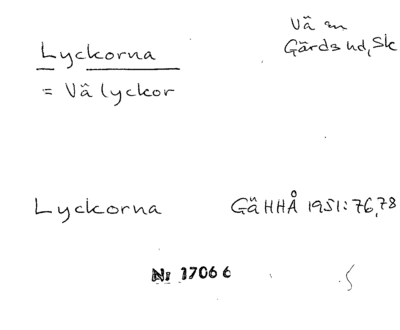 Lyckorna
Vä sn
Gärds hd, Sk
= Vä lyckor
Lyckorna
GäHHÅ 1951: 76, 78
Nr 17066